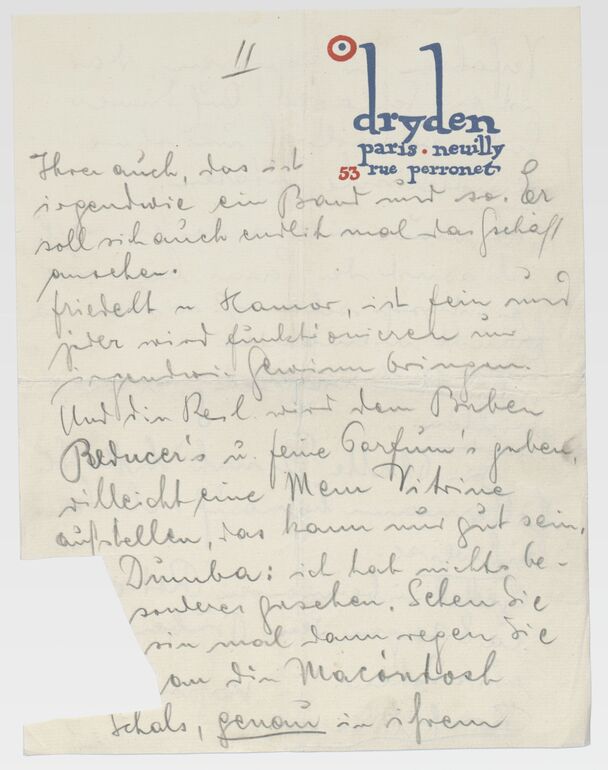 11
dryden
paris • neuilly
53 rue perronet
Ihrer auch, das ist
irgendwie ein Band und so. Er
soll sich auch endlich mal das Gschäft
ansehen.
Friedell u Hamor, ist fein und
jeder wird funktionieren und
irgendwie Gewinn bringen.
Und die Resl. wird dem Buben
Reducer's u. feine Parfum's geben,
villeicht eine Mem Vitrine
aufstellen, das kann nur gut sein.
Dumba: ich hab nichts be-
sonderes gesehen. Sehen Sie
ihn mal dann regen Sie
an die Macóntosh
Schals, genau in ihrem